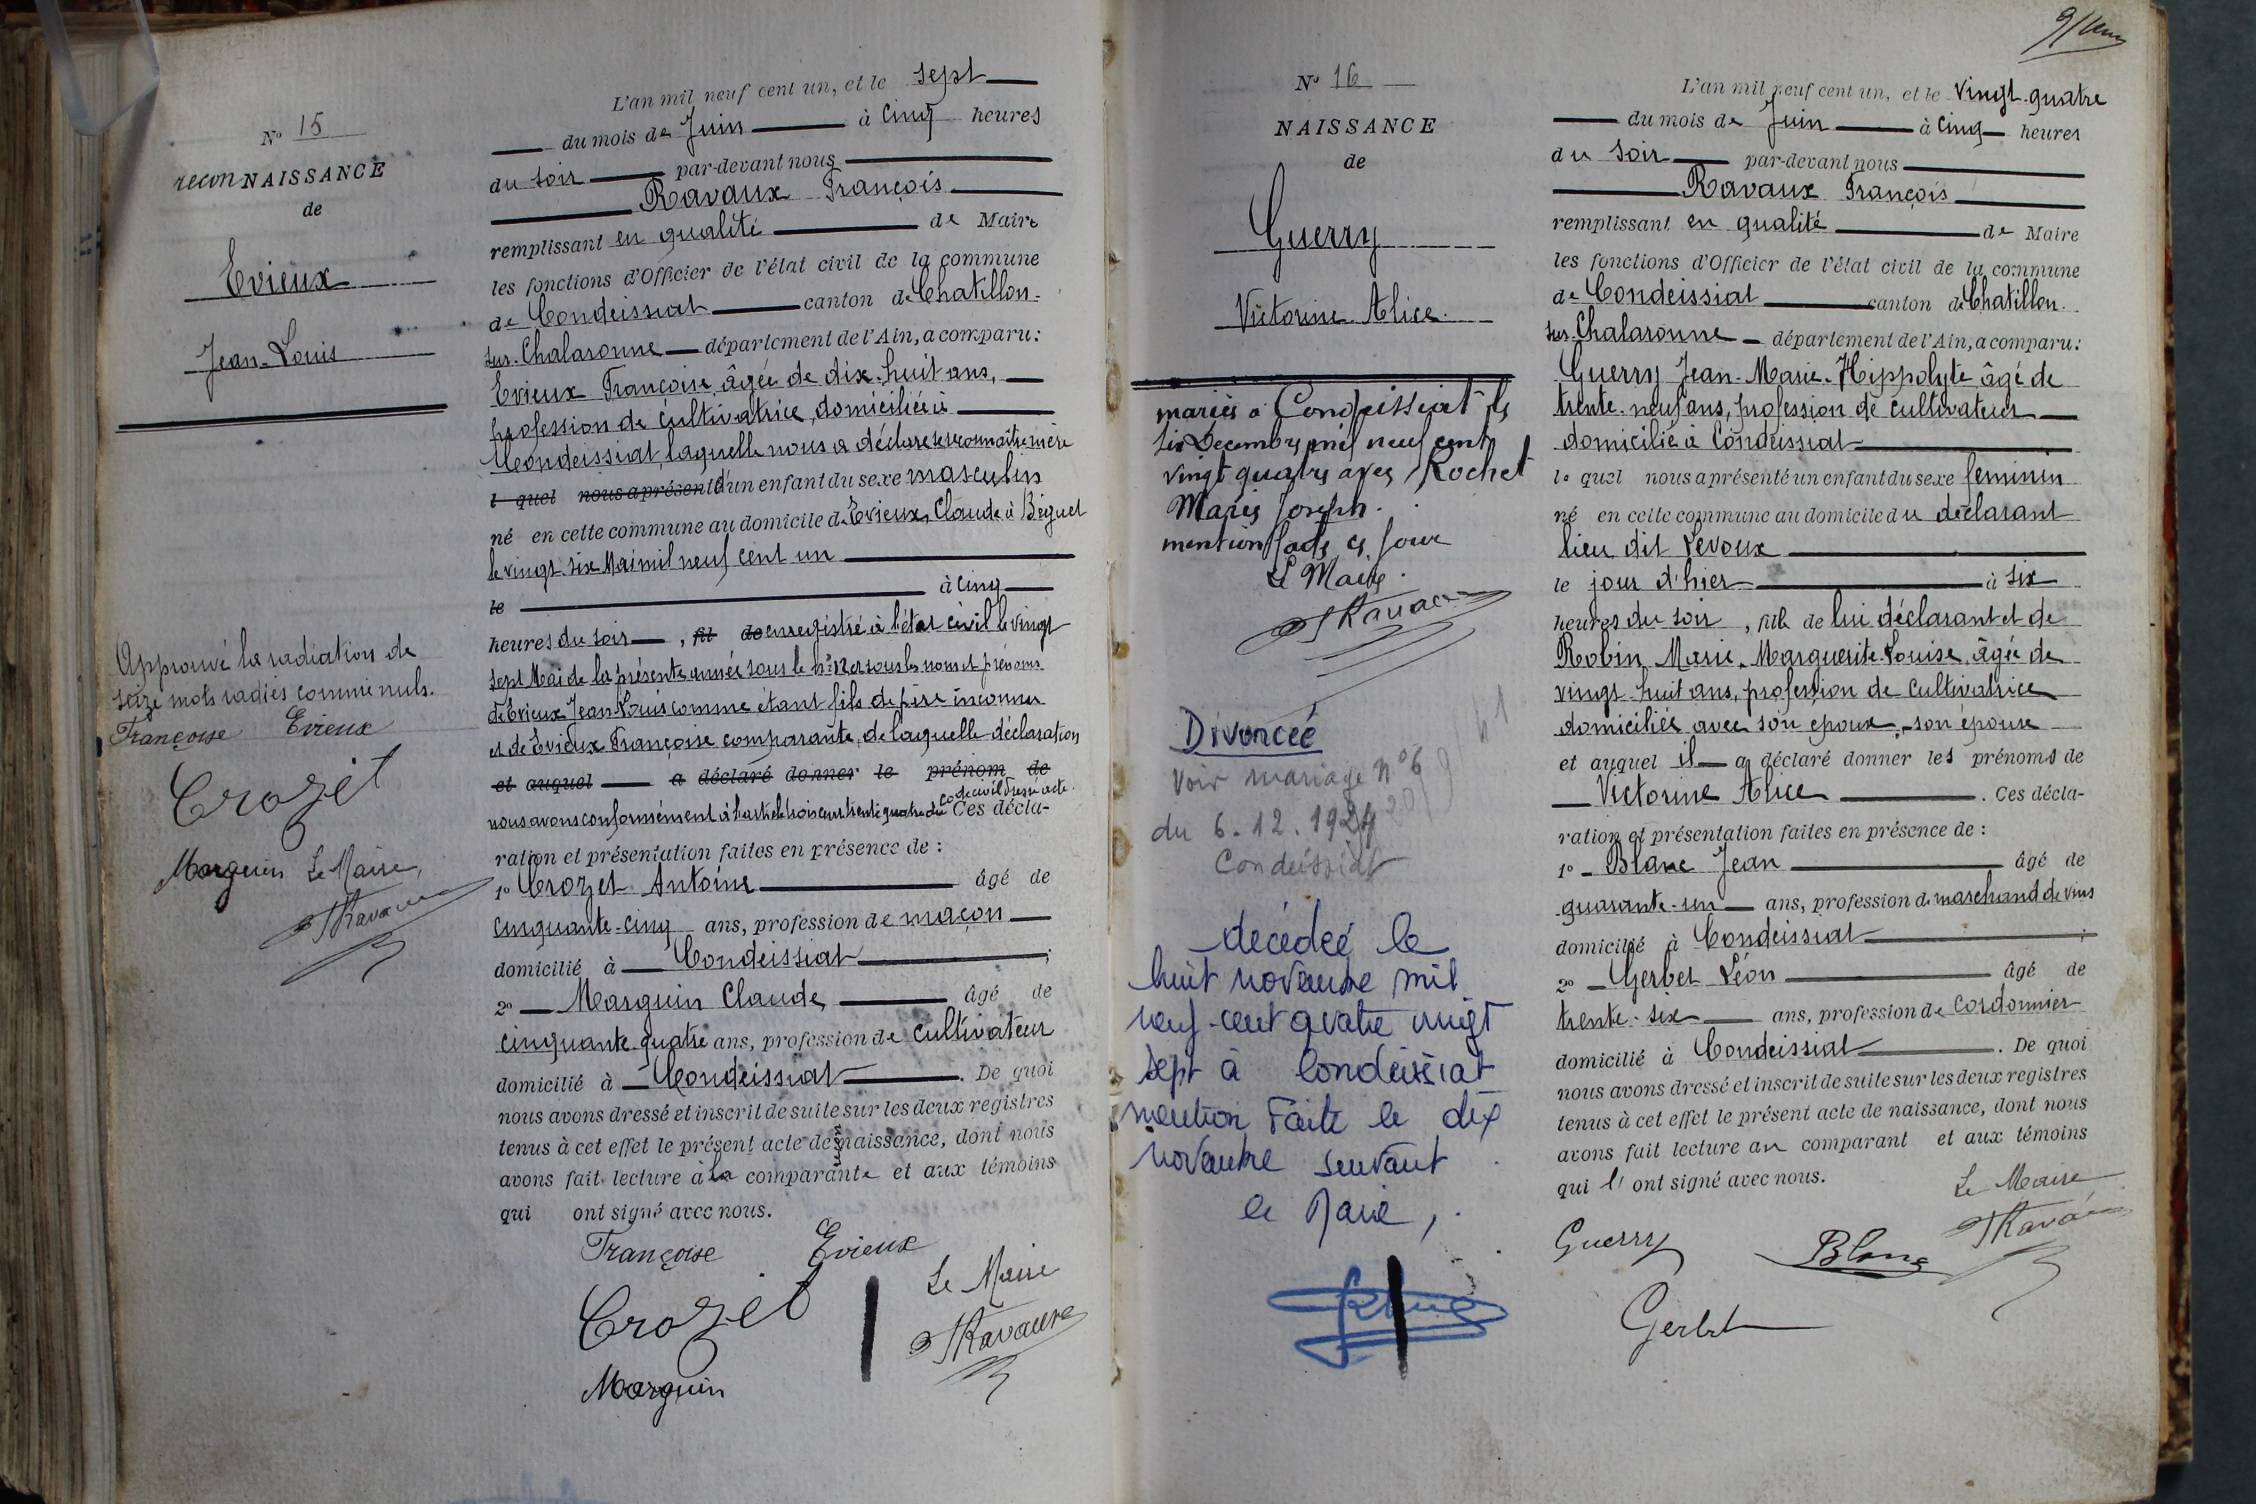 N° 15
reconNAISSANCE
de
Evieux
Jean-Louis
Approuvé la radiation de
seize mots radiés comme nuls.
Françoise Evieux
Crozet
Marguin Le Maire,
F Ravaux
L'an mil neuf cent un, et le sept
du mois de Juin à cinq heures
du soir par-devant nous
Ravaux François
remplissant en qualité de Maire
les fonctions d'Officier de l'état civil de la commune
de Condeissiat canton de Chatillon-
sur-Chalaronne département de l'Ain, a comparu:
Evieux Françoise, âgée de dix-huit ans,
profession de cultivatrice, domiciliée à
Condeissiat, laquelle nous a déclaré se reconnaître mère
l quel nous a présenté d'un enfant du sexe masculin
né en cette commune au domicile de Evieux, Claude à Béguet
le vingt six Mai mil neuf cent un
le à cinq
heures du soir, fil de enregistré à l'état civil le vingt
sept Mai de la présente année sous le n° 12 et sous les nom et prénoms
de Evieux Jean Louis comme étant fils de père inconnu
et de Evieux Françoise comparante, de laquelle déclaration
et auquel a déclaré donner le prénom de
code civil dressé acte.
nous avons conformément à l'article trois cent trente quatre du Ces décla-
ration et présentation faites en présence de :
1° Crozet Antoine âgé de
cinquante-cinq ans, profession de maçon
domicilié à Condeissiat ;
2° Marguin Claude, âgé de
cinquante-quatre ans, profession de cultivateur
domicilié à Condeissiat. De quoi
nous avons dressé et inscrit de suite sur les deux registres
tenus à cet effet le présent acte de reconnaissance, dont nous
avons fait lecture à la comparante et aux témoins
qui ont signé avec nous.
Françoise Evieux
Crozet Le Maire
F Ravaux
Marguin
N° 16
NAISSANCE
de
Guerry
Victorine Alice.
mariée à Condeissiat le
six Decembre mil neuf cent
vingt quatre avec Rochet
Marie Joseph.
mention faite ce jour
Le Maire.
F Ravaux
Divorcée
Voir mariage N° 6
du 6.12.1924
Condeissiat
décédée le
huit novembre mil
neuf-cent quatre vingt
sept à Condeissiat
mention faite le dix
novembre suivant
le Maire,
L'an mil neuf cent un, et le vingt-quatre
du mois de Juin à cinq heures
du soir par-devant nous
Ravaux François
remplissant en qualité de Maire
les fonctions d'Officier de l'état civil de la commune
de Condeissiat canton de Chatillon-
sur-Chalaronne département de l'Ain, a comparu:
Guerry Jean-Marie-Hippolyte âgé de
trente-neuf ans, profession de cultivateur
domicilié à Condeissiat
le quel nous a présenté un enfant du sexe feminin
né en cette commune au domicile du déclarant
lieu dit Levoux
le jour d'hier à six
heures du soir, fille de lui déclarant et de
Robin, Marie, Marguerite-Louise, âgée de
vingt-huit ans, profession de cultivatrice
domiciliée avec son époux, son épouse
et auquel il a déclaré donner les prénoms de
Victorine Alice. Ces décla-
ration et présentation faites en présence de :
1° Blanc Jean âgé de
quarante-un ans, profession de marchand de vins
domicilié à Condeissiat ;
2° Gerbet Léon âgé de
trente-six ans, profession de cordonnier
domicilié à Condeissiat. De quoi
nous avons dressé et inscrit de suite sur les deux registres
tenus à cet effet le présent acte de naissance, dont nous
avons fait lecture au comparant et aux témoins
qui l' ont signé avec nous.
Le Maire
Guerry Blanc F Ravaux
Gerbet